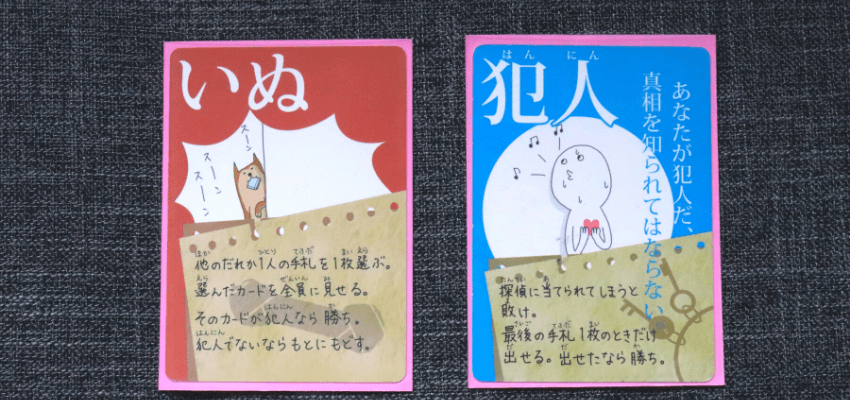 いぬ
スーン
スーン
スーン
他のだれか1人の手札を1枚選ぶ。
選んだカードを全員に見せる。
そのカードが犯人なら勝ち。
犯人でないならもとにもどす。
犯人
あなたが犯人だ、
真相を知られてはならない
探偵に当てられてしまうと
敗け。
最後の手札1枚のときだけ
出せる。出せたなら勝ち。